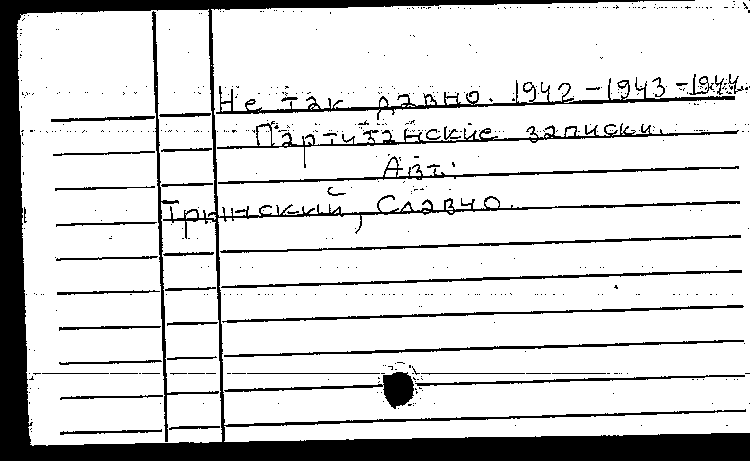 Не так давно. 1942-1943-1944.
Партизанские записки.
Авт:
Трынский, Славно.